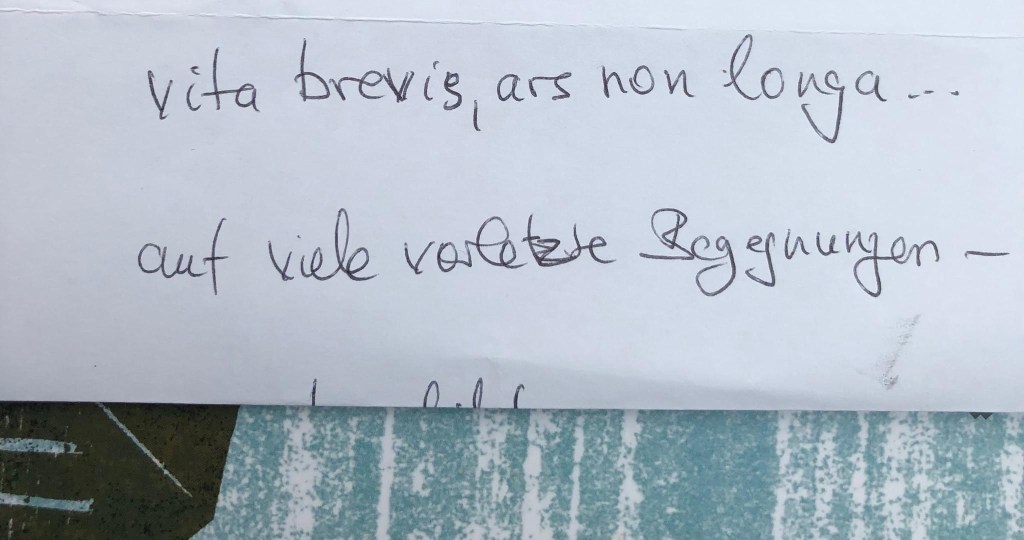 vita brevis, ars non longa...
auf viele vorletzte Begegnungen –